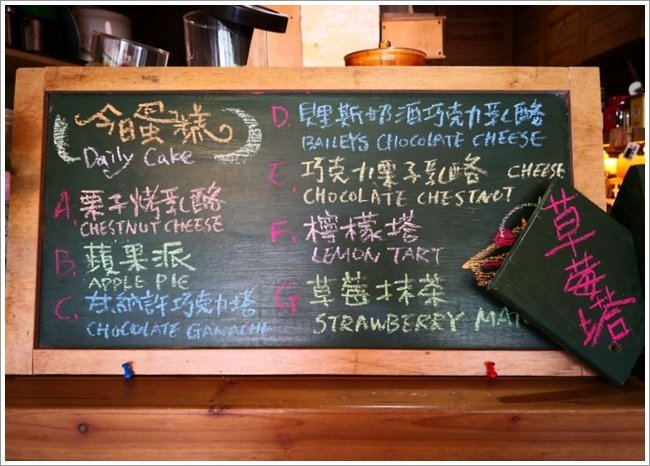 今日蛋糕
Daily Cake
A 栗子烤乳酪
CHESTNUT CHEESE
B. 蘋果派
APPLE PIE
C. 甘納許巧克力塔
CHOCOLATE GANACHE
D. 貝里斯奶酒巧克力乳酪
BAILEYS CHOCOLATE CHEESE
E. 巧克力栗子乳酪 CHEESE
CHOCOLATE CHESTNUT
F. 檸檬塔
LEMON TART
G 草莓抹茶
STRAWBERRY
草莓塔